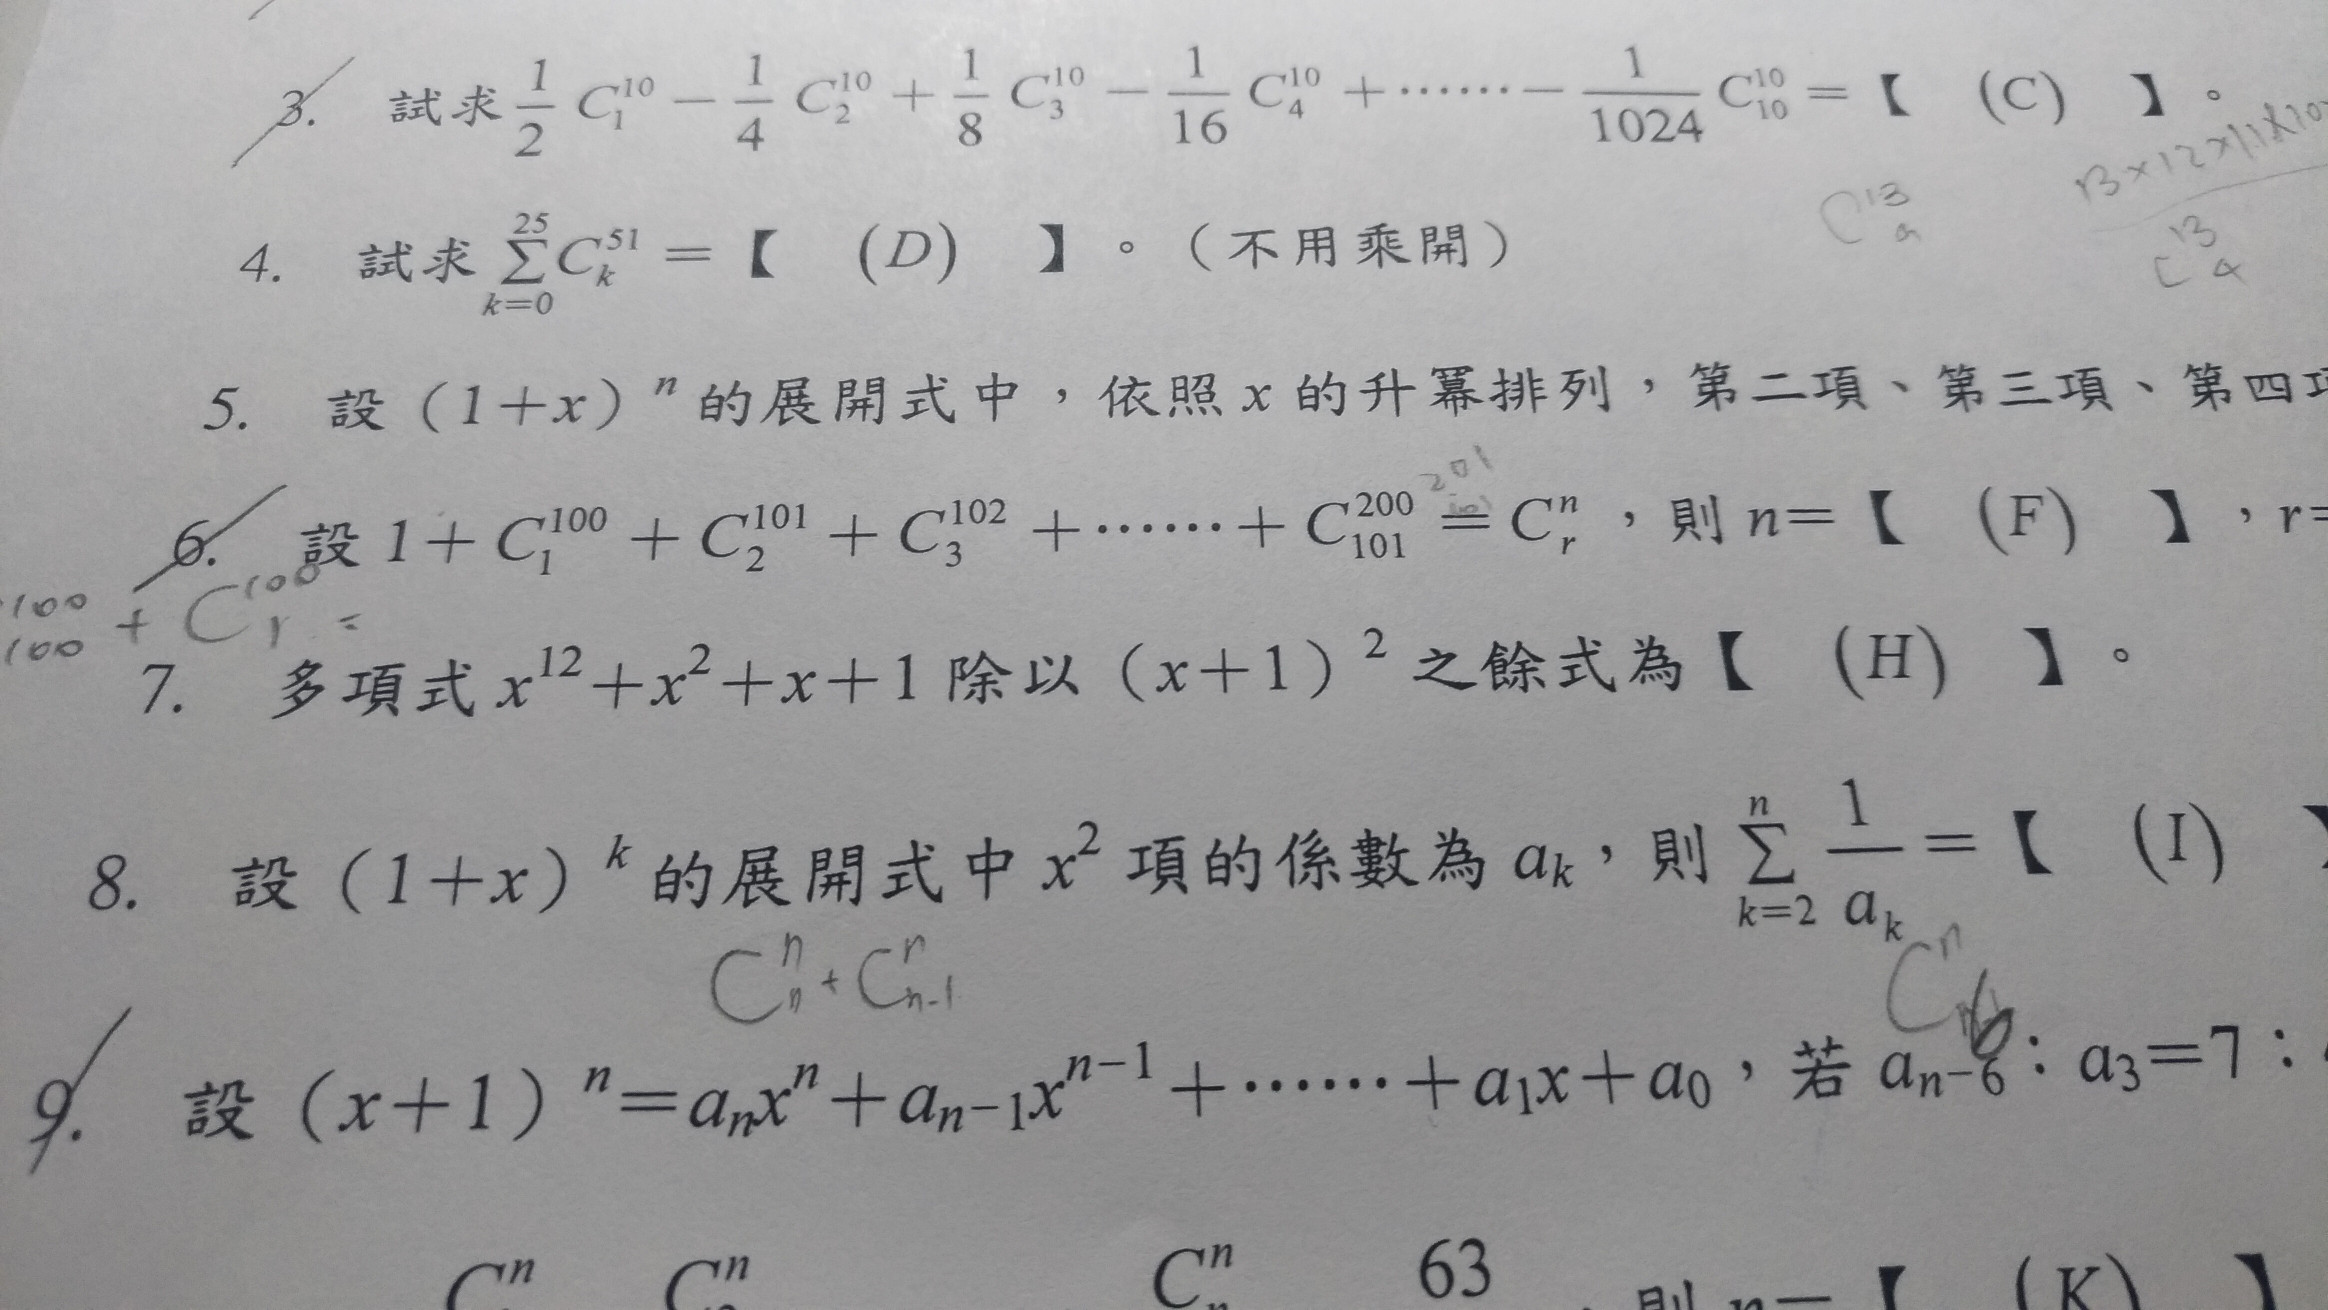 3. 試求 1/2 C₁¹⁰ − 1/4 C₂¹⁰ + 1/8 C₃¹⁰ − 1/16 C₄¹⁰ + …… − 1/1024 C₁₀¹⁰ = 【 (C) 】。
13×12×11×10
C¹³
C¹³₄
4. 試求 Σ_{k=0}^{25} C_k^{51} = 【 (D) 】。（不用乘開）
5. 設（1+x）ⁿ 的展開式中，依照 x 的升冪排列，第二項、第三項、第四
201
6. 設 1 + C₁¹⁰⁰ + C₂¹⁰¹ + C₃¹⁰² + …… + C₁₀₁²⁰⁰ = C_r^n，則 n=【 (F) 】，r=
100 100 + C₁¹⁰⁰ =
7. 多項式 x¹²+x²+x+1 除以（x+1）² 之餘式為【 (H) 】。
8. 設（1+x）ᵏ 的展開式中 x² 項的係數為 a_k，則 Σ_{k=2}^{n} 1/a_k =【 (I) 】
C_n^n + C_{n-1}^r
9. 設（x+1）ⁿ=a_n xⁿ+a_{n−1}x^{n−1}+……+a₁x+a₀，若 a_{n−6}：a₃=7：
63
，則 n=【 (K) 】